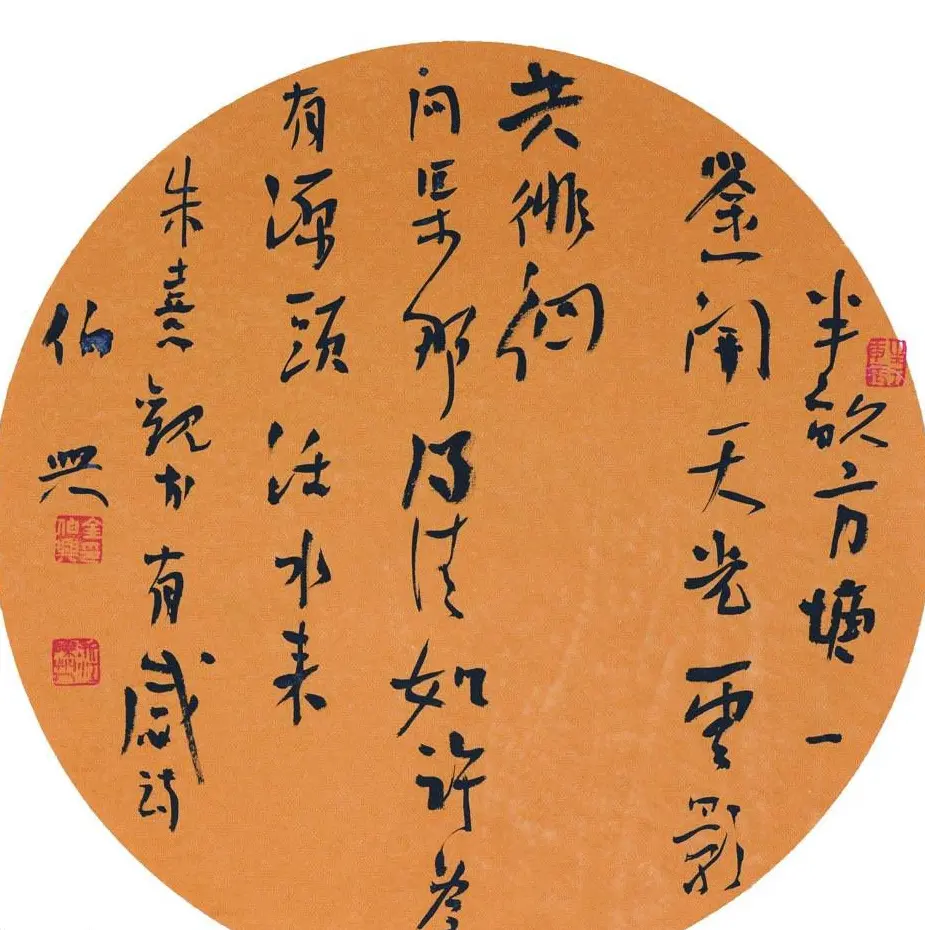 半畝方塘一
鑒開天光雲影
共徘徊
問渠那得清如許為
有源頭活水來
朱熹觀書有感詩
伯興